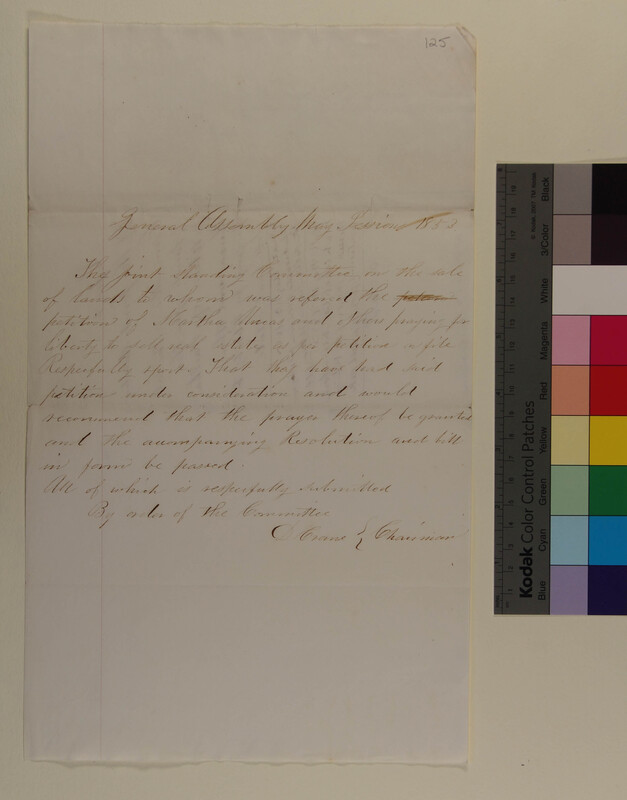 125
General Assembly May Session 1853
The joint standing Committee on the sale
of lands to whom was referd the
petition of Martha and praying for
liberty to sell real estate as per petition on file
Respectfully report. That they have had said
petition under consideration and would
recommend that the prayer therof be granted
and the accompanying Resolution and bill
in form be passed.
All of which is respectfully submitted
By order of the Committee
D. Crane } Chairman
Kodak Color Control Patches
Blue Cyan Green Yellow Red Magenta White 3/Color Black